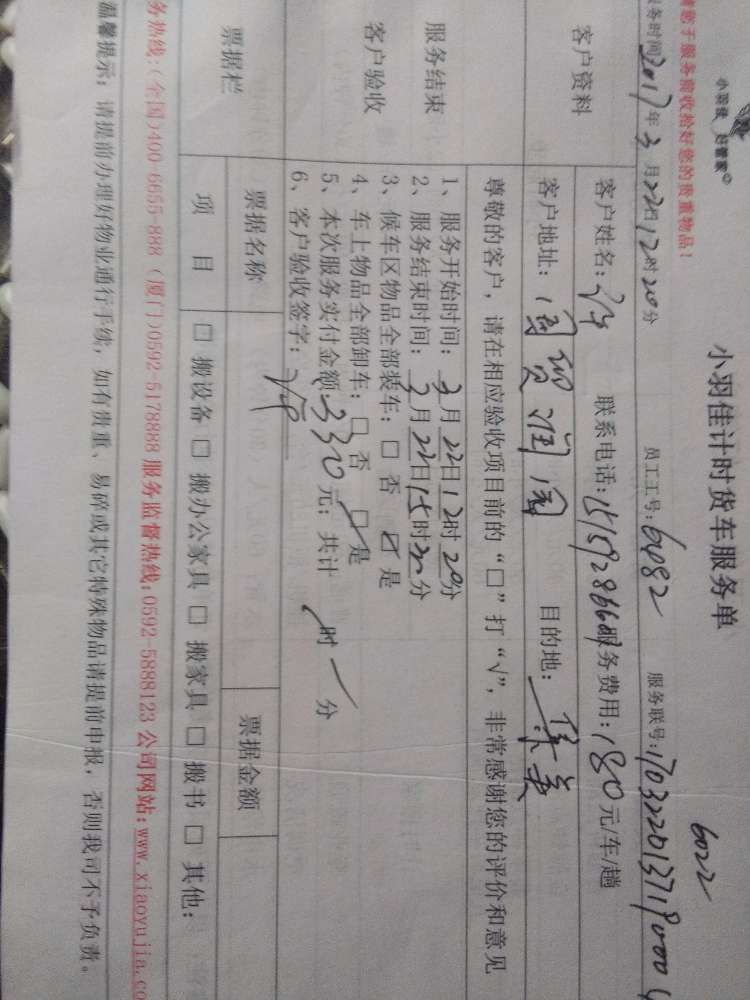 小羽佳 好管家
小羽佳计时货车服务单
6022
请您于服务前收拾好您的贵重物品！
服务时间2017年3月22日12时20分 员工工号：6082 服务联号：170322013719000
客户资料
客户姓名： 联系电话： 服务费用：180元/车/趟
客户地址：国贸润园 目的地：集美
尊敬的客户，请在相应验收项目前的“□”打“√”，非常感谢您的评价和意见
服务结束
客户验收
1、服务开始时间：3月22日12时20分
2、服务结束时间：3月22日15时 分
3、候车区物品全部装车：□ 否 ☑ 是
4、车上物品全部卸车：□ 否 ☑ 是
5、本次服务实付金额：330元；共计 / 时 / 分
6、客户验收签字：
票据栏
票据名称 票据金额
项 目 □ 搬设备 □ 搬办公家具 □ 搬家具 □ 搬书 □ 其他：
务热线：(全国)400-6655-888 (厦门)0592-5178888 服务监督热线：0592-5888123 公司网站：www.xiaoyujia.co
温馨提示：请提前办理好物业通行手续，如有贵重、易碎或其它特殊物品请提前申报，否则我司不予负责。